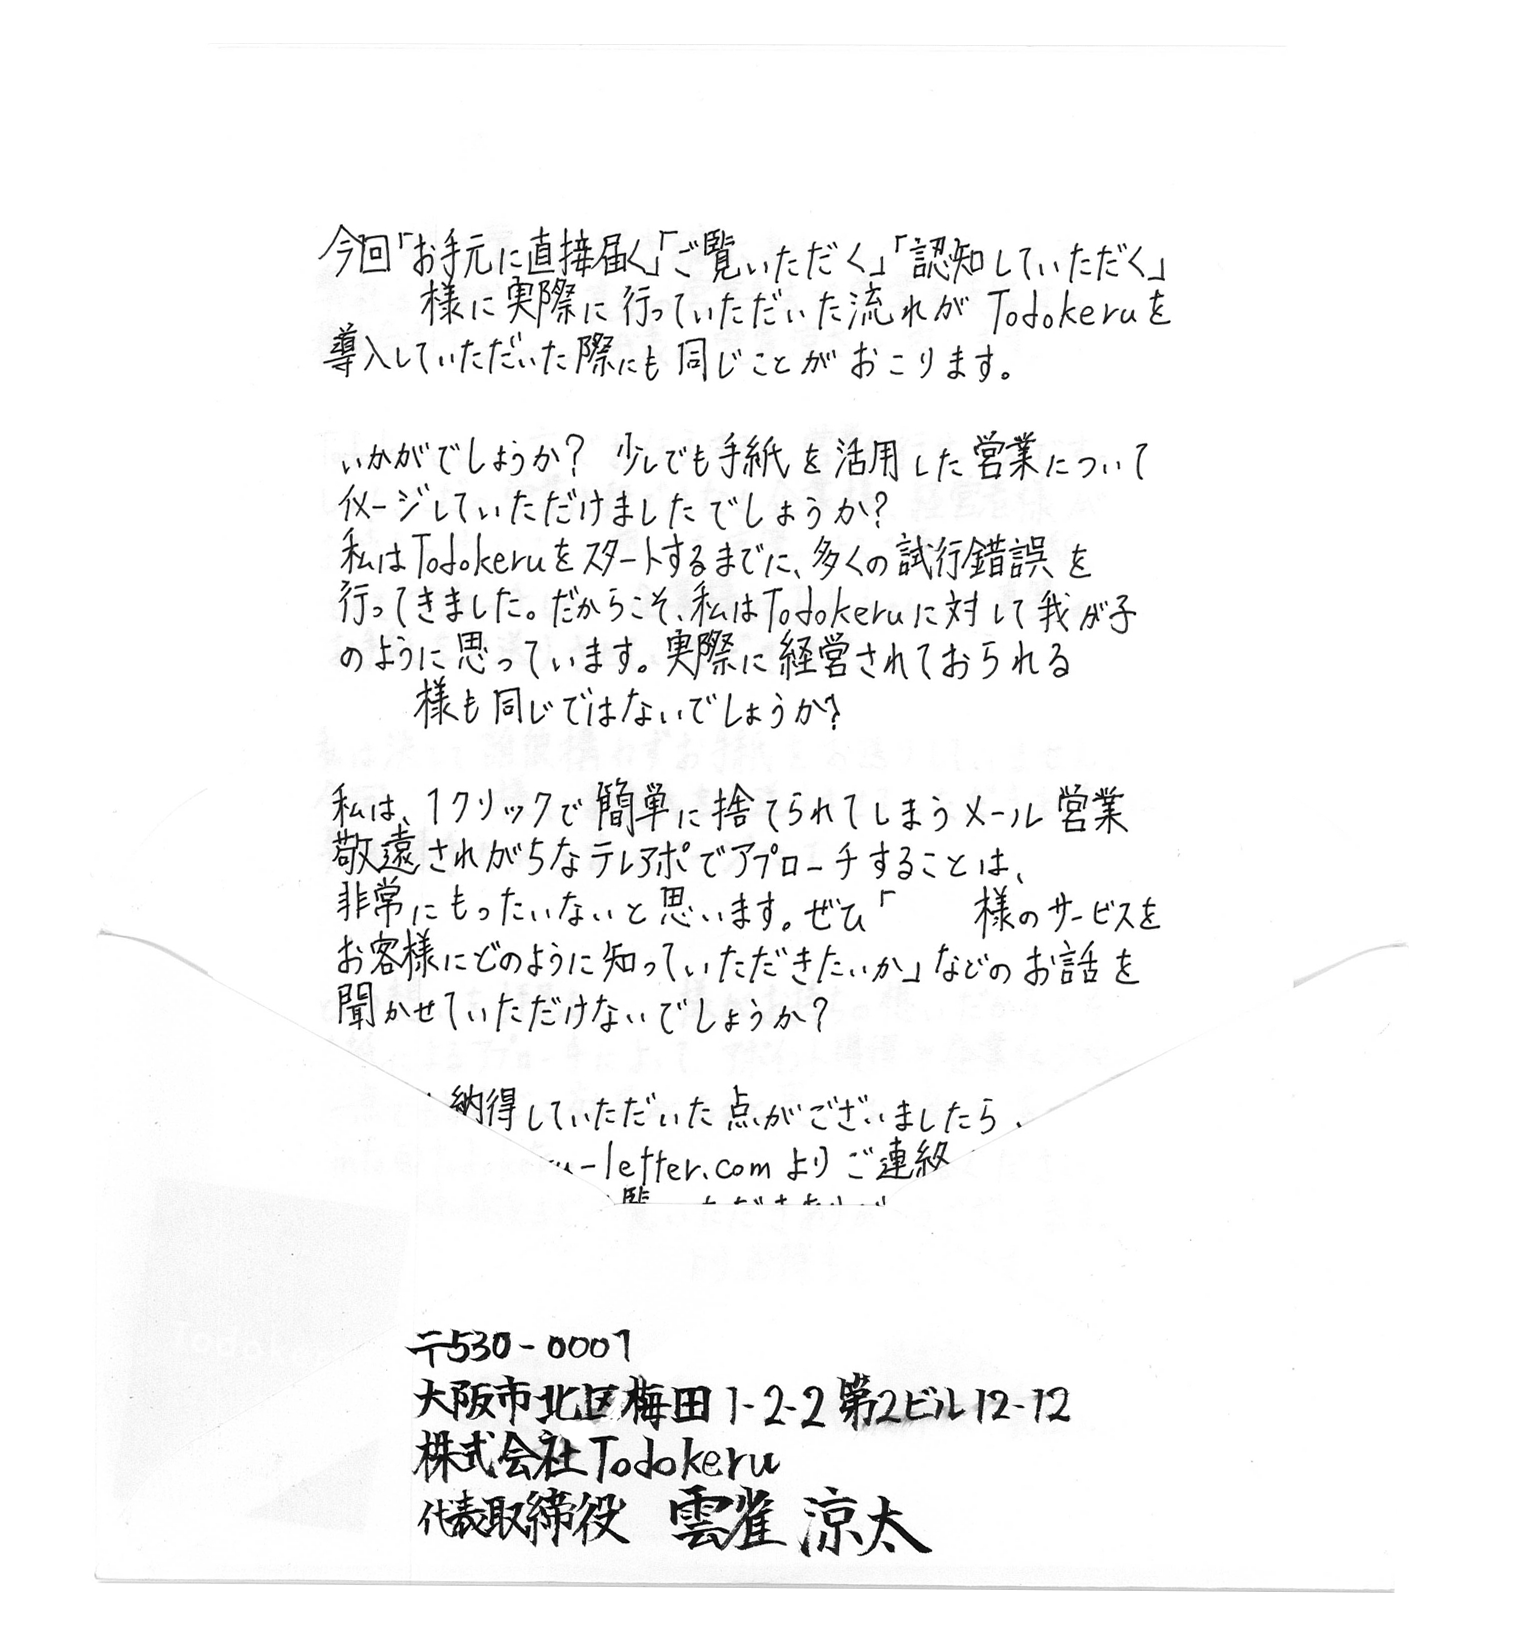 今回「お手元に直接届く」「ご覧いただく」「認知していただく」
様に実際に行っていただいた流れが Todokeruを
導入していただいた際にも同じことがおこります。
いかがでしょうか? 少しでも手紙を活用した営業について
イメージしていただけましたでしょうか?
私はTodokeruをスタートするまでに、多くの試行錯誤を
行ってきました。だからこそ、私はTodokeruに対して我が子
のように思っています。実際に経営されておられる
様も同じではないでしょうか?
私は、1クリックで簡単に捨てられてしまうメール営業
敬遠されがちなテレアポでアプローチすることは、
非常にもったいないと思います。ぜひ「 様のサービスを
お客様にどのように知っていただきたいか」などのお話を
聞かせていただけないでしょうか?
納得していただいた点がございましたら、
u-letter.comよりご連絡
覧いただきありが
〒530-0001
大阪市北区梅田1-2-2 第2ビル12-12
株式会社Todokeru
代表取締役 雲雀 涼太